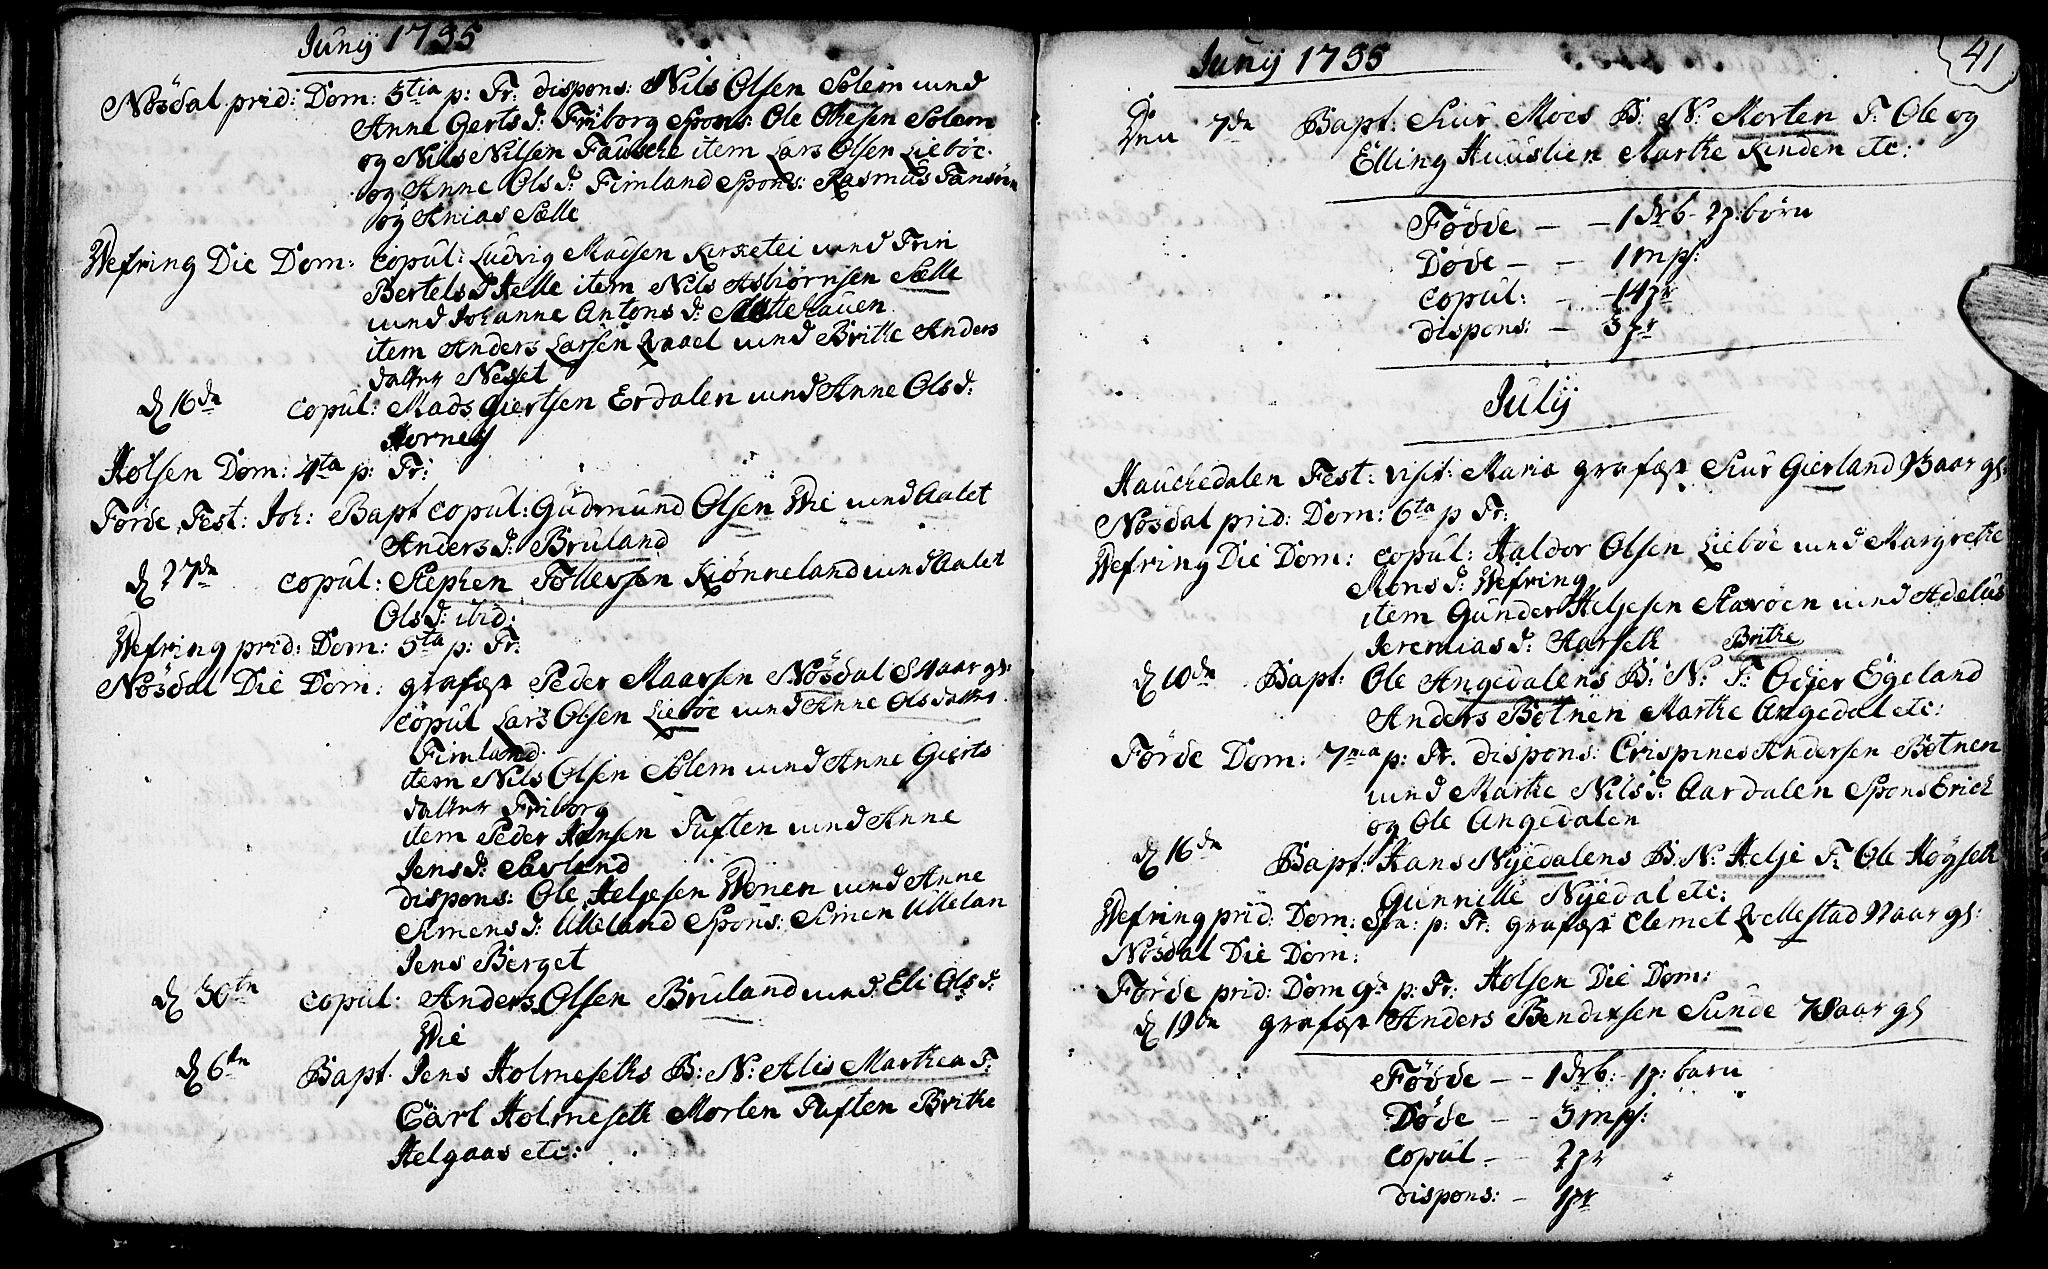 Junij 1735
Nösdal prid: Dom: 3tia p: Tr: dispons: Nils Olsen Solem und
Anne Gerts d: Friborg Spons: Ole Othesen Solem
og Nils Nilsen Fauske item Lars Olsen Liebøe
og Anne Ols d: Fimland Spons: Rasmus
og Anias Sælle
Wefring Die Dom: copul: Ludvig Madsen Kirketei und Trin
Bertels d Helle item Nils Asbiørnsen Sælle
und Johanne Antons d:
item Anders Larsen Qvaal und Brithe Anders
datter Neset
d 16de copul: Mads Giertsen Erdalen und Anne Ols d:
Hornes
Holsen Dom: 4ta p: Tr:
Förde Fest: Joh: Bapt copul: Gudmund Olsen Wie und Aalet
Anders d: Bruland
d 27de copul: Stephen Tollefsen Kiønneland und Aalet
Ols d: ibid:
Wefring prid: Dom: 5ta p: Tr:
Nösdal Die Dom: grafæst Peder Maarsen Nösdal 84 aar gl:
copul Lars Olsen Liebøe und Anne Olsdatter
Fimland
item Nils Olsen Solem und Anne Gierts
datter Friborg
item Peder Hansen Tuften und Anne
Jens d: Savland
dispons: Ole Helgesen Wonen und Anne
Simens d: Ulleland Spons: Simen Ullelan
Jens Berget
d 30te copul: Anders Olsen Bruland und Eli Ols d:
Wie
d 6te Bapt. Jens Holmeseths B: N: Alis Marthea F:
Carl Holmeseth Morten Tuften Brithe
Helgaas etc:
Junij 1735
41
Den 7de Bapt: Siur Moes B: N: Morten F: Ole og
Elling Huuslien Marthe Kinden etc:
Födde – – 1 drb. 2 p: børn
Døde – – 1 mp:
copul: – – 14 pr
dispons: – 3 pr
Julij
Hauchedalen Fest: visit: Mariæ grafæst Siur Gierland 93 aar gl:
Nösdal prid: Dom: 6ta p Tr:
Wefring Die Dom: copul: Haldor Olsen Liebøe und Margrethe
Mons d: Wefring
item Gunder Helgesen Stavøen und Adelus
Jeremias d: Harseth Brithe
d 10de Bapt: Ole Angedalens B: N: F: Odjer Egeland
Anders Botnen Marthe Angedal etc:
Förde Dom: 7ma p: Tr. dispons: Crispines Andersen Botnen
und Marthe Nils d: Aardalen Spons Erich
og Ole Angedalen
d 16de Bapt: Hans Nyedalens B: N: Helje F: Ole Høyseth
Gunnille Nyedal etc:
Wefring prid: Dom: 8va: p: Tr: grafæst Clemet Qvellestad 92 aar gl:
Nösdal Die Dom:
Förde prid: Dom 9a p: Tr: Holsen Die Dom:
d 19de grafæst Anders Bendixsen Sunde 78 aar gl
Födde – – 1 drb: 1 p: barn
Døde – – 3 mp:
copul – – 2 pr
dispons: – 1 pr